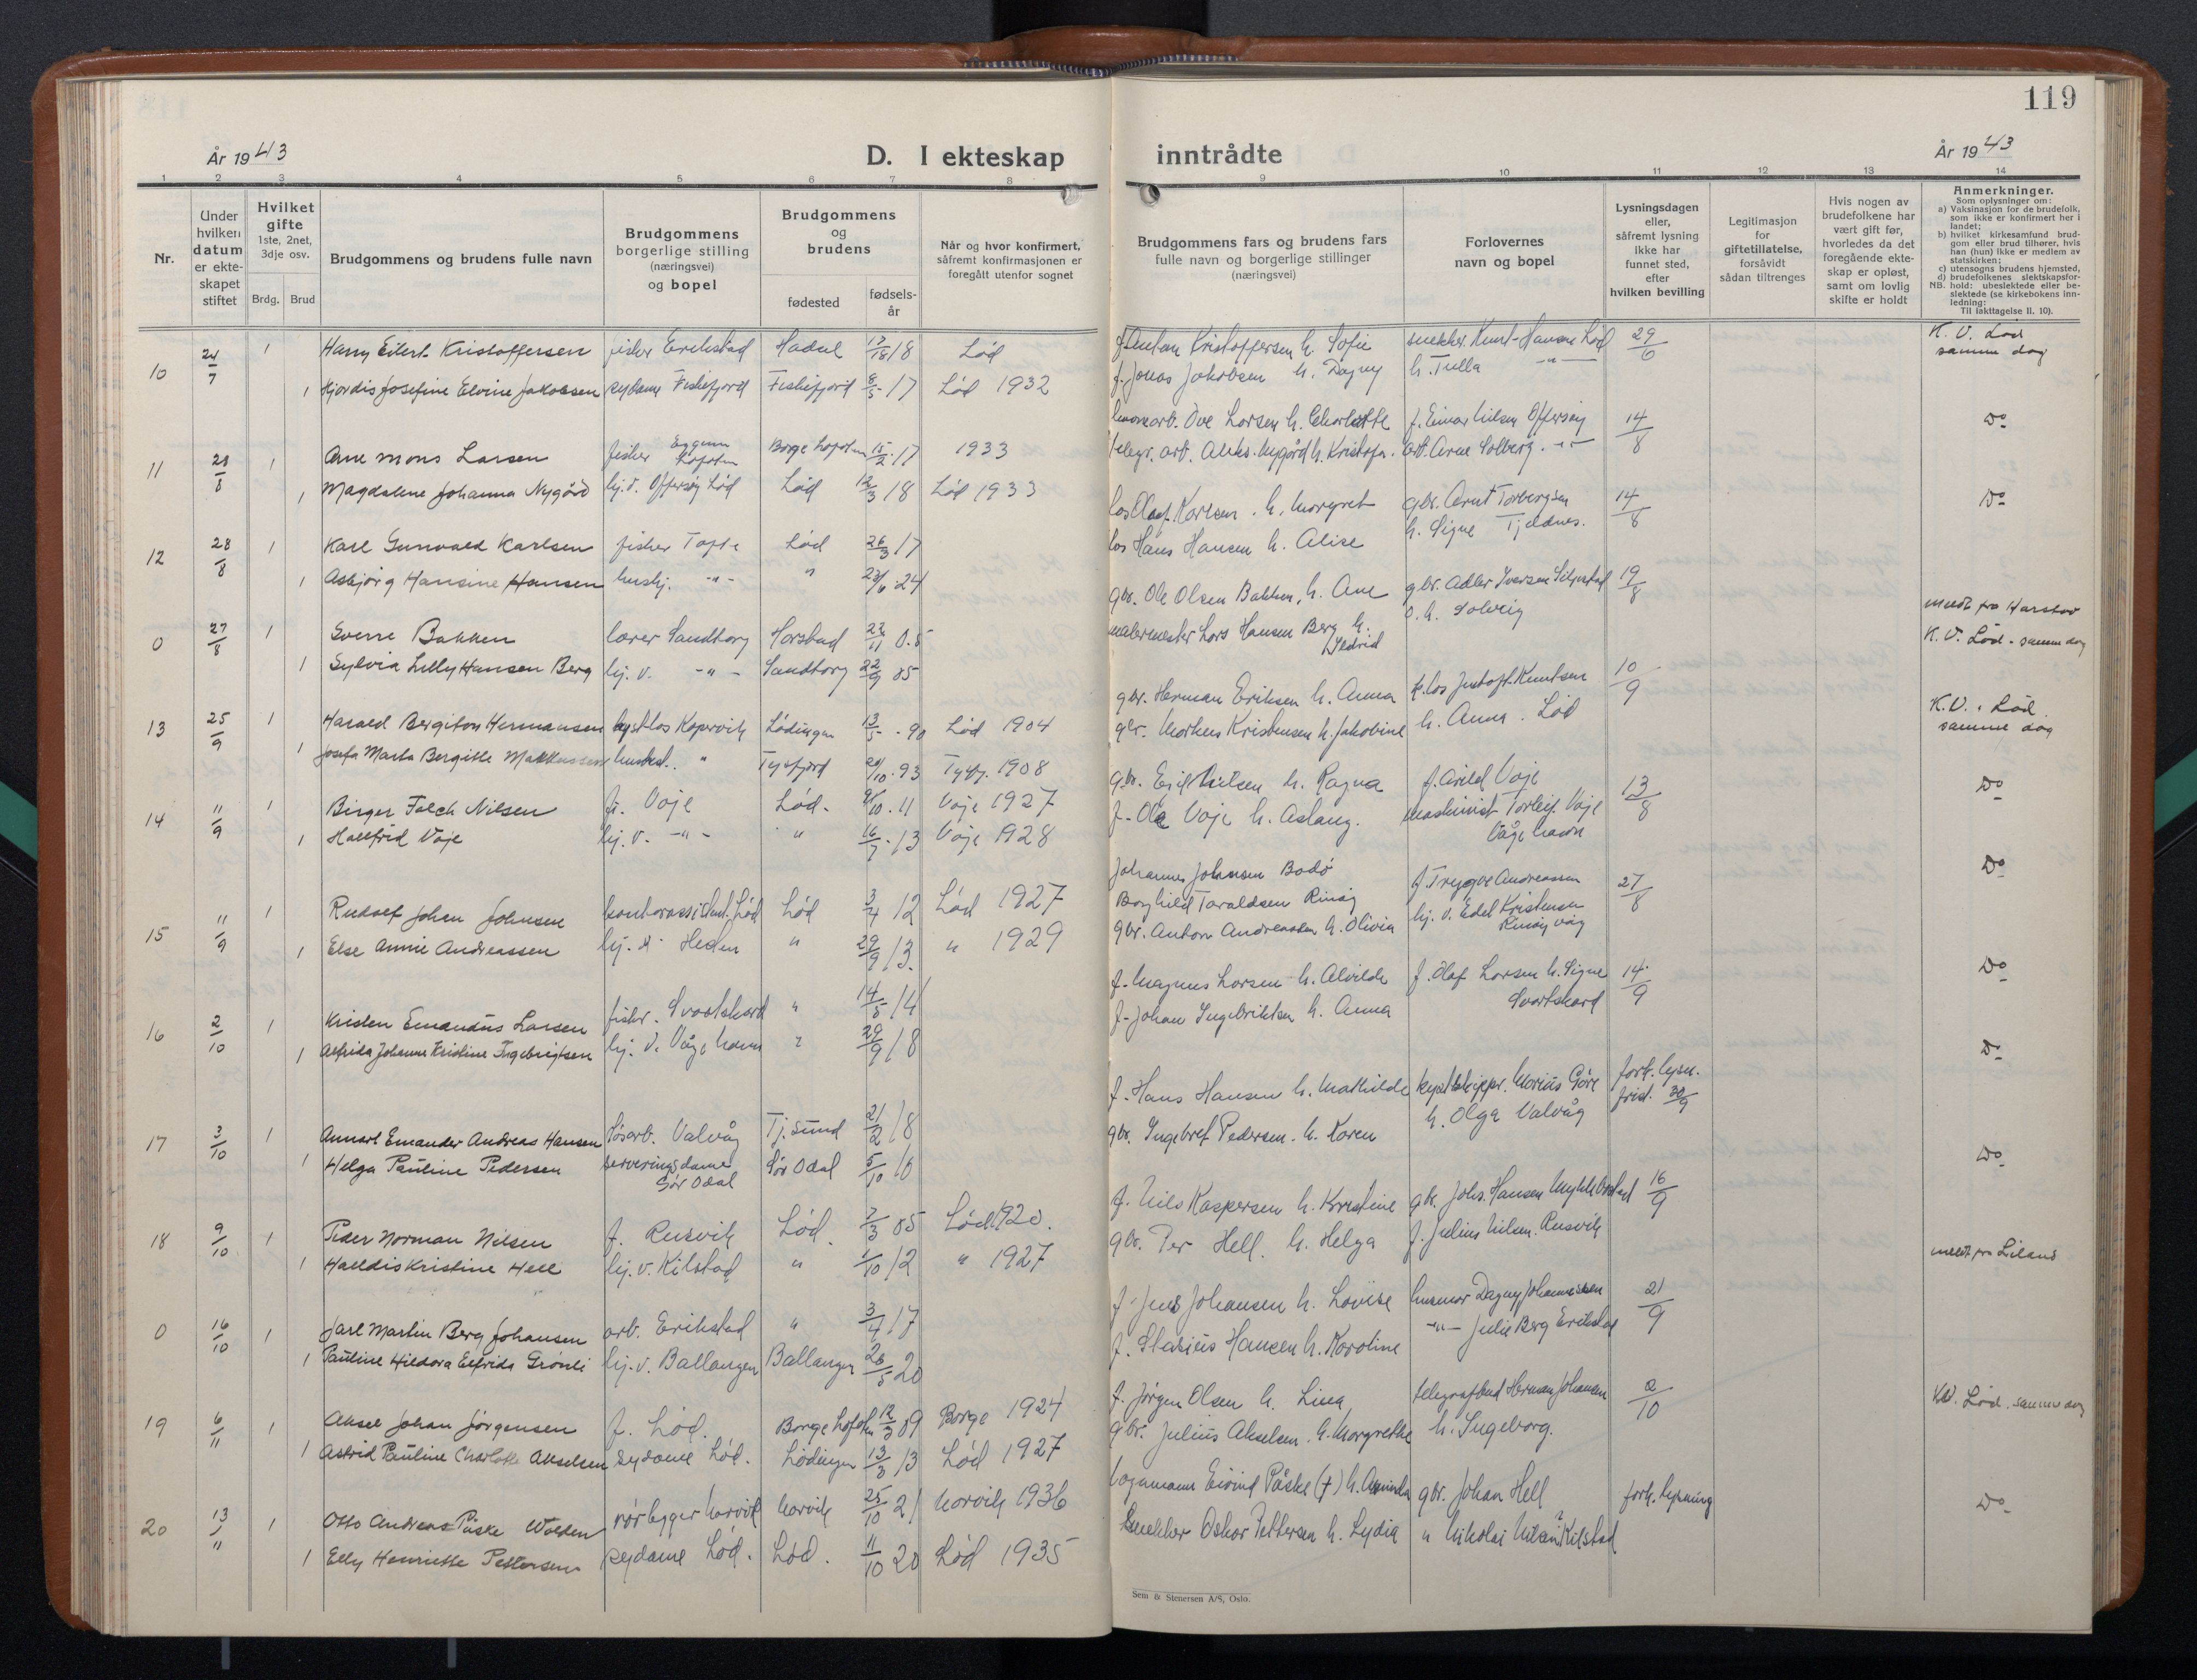 119
År 1943
D. I ekteskap
inntrådte
År 1943
1 2 3 4 5 6 7 8 9 10 11 12 13 14
Nr.
Under hvilken datum er ekteskapet stiftet
Hvilket gifte 1ste, 2net, 3dje osv.
Brdg. Brud
Brudgommens og brudens fulle navn
Brudgommens borgerlige stilling (næringsvei) og bopel
Brudgommens og brudens
fødested
fødsels-år
Når og hvor konfirmert, såfremt konfirmasjonen er foregått utenfor sognet
Brudgommens fars og brudens fars fulle navn og borgerlige stillinger (næringsvei)
Forlovernes navn og bopel
Lysningsdagen eller, såfremt lysning ikke har funnet sted, efter hvilken bevilling
Legitimasjon for giftetillatelse, forsåvidt sådan tiltrenges
Hvis nogen av brudefolkene har vært gift før, hvorledes da det foregående ekteskap er opløst, samt om lovlig skifte er holdt
Anmerkninger.
Som oplysninger om:
a) Vaksinasjon for de brudefolk, som ikke er konfirmert her i landet;
b) hvilket kirkesamfund brudgom eller brud tilhører, hvis han (hun) ikke er medlem av statskirken;
c) utensogns brudens hjemsted,
d) brudefolkenes slektskapsforhold: ubeslektede eller beslektede (se kirkebokens innledning:
NB.
Til iakttagelse II. 10).
10 24/7 1 Harry Eilert Kristoffersen fisker Erikstad Hadsel 17/18 18 Lød f. Anton Kristoffersen h. Sofie snekker Knut Hansen Lød 29/6 K.V. Lød samme dag
1 Hjordis Josefine Elvine Jakobsen sydame Fiskefjord Fiskefjord 8/5 17 Lød 1932 f. Jonas Jakobsen h. Dagny h. Tulla -"-
11 28/8 1 Arne Mons Larsen fisker Eggum Lofoten Borge Lofoten 15/2 17 1933 Ove Larsen h. Charlotte f. Einar Nilsen Offersøy 14/8 Do
1 Magdalene Johanna Nygård hj.v. Offersøy Lød Lød 12/3 18 Lød 1933 telegr. arb. Aleks. Nygård h. Kristofa. arb. Arne Solberg -"-
12 28/8 1 Karl Gunvald Karlsen fisker Tofte Lød 26/3 17 los Olaf Karlsen h. Margret gbr. Arnt Torbergsen 14/8 Do
1 Asbjørg Hansine Hansen hushj. -"- " 23/6 24 los Hans Hansen h. Alise h. Signe Tjeldnes.
0 27/8 1 Sverre Bakken lærer Sandtorg Harstad 22/11 05 gbr. Ole Olsen Bakken, h. Ane gbr. Adler Iversen 19/8 meldt fra Harstad
1 Sylvia Lilly Hansen Berg hj.v. -"- Sandtorg 22/9 05 malermester Lars Hansen Berg h. o. h. Solveig K.V. Lød samme dag
13 25/9 1 Harald Bergiton Hermansen kystlos Kopervik Lødingen 13/5 90 Lød 1904 gbr. Herman Eriksen h. Anna Knutsen 10/9 K.V. Lød samme dag
1 Josefa Marta Bergitte Markussen " Tysfjord 20/10 93 Tysfj. 1908 gbr. Markus Kristensen h. Jakobine h. Anna. Lød
14 11/9 1 Birger Falch Nilsen fi. Voje Lød. 11 Voje 1927 gbr. Nilsen h. Ragna f. Arild Voje 13/8 Do
1 Hallfrid Voje hj.v. -"- " 16/7 13 Voje 1928 f. Ole Voje h. Aslaug. maskinist Torleif Voje Vågehavn
15 11/9 1 Rudolf Johan Johnsen kontorassistent Lød Lød 3/4 12 Lød 1927 Johannes Johansen Bodø f. Trygve Andreassen 27/8 Do
Borghild Taraldsen Rinøy hj.v. Edel Kristensen Rinøyvåg
1 Else Annie Andreassen hj.v. Heden " 29/9 13 " 1929 gbr. Anton Andreassen h. Olivia
16 2/10 1 Kristen Emandus Larsen fisker. Svartskard " 14/5 14 f. Magnus Larsen h. Alvilde f. Olaf Larsen h. Signe Svartskard 14/9 Do
1 Alfrida Johanne Kristine Ingebrigtsen hj.v. Vågehavn " 29/9 18 f. Johan Ingebriktsen h. Anna
17 3/10 1 Annart Emander Andreas Hansen Løsarb. Valvåg Tj.sund 21/2 18 f. Hans Hansen h. Mathilde kystskipper. Marius Gåre fork. lysn. frist. 30/9 Do
1 Helga Pauline Pedersen serveringsdame Sør Odal Sør Odal 5/10 16 gbr. Ingebret Pedersen h. Karen h. Olga Valvåg
18 9/10 1 Peder Norman Nilsen f. Rusvik Lød. 7/3 05 Lød. 1920. f. Nils Kaspersen h. Kristine gbr. Johs. Hansen 16/9 Do
1 Halldis Kristine Hell hj.v. Kilstad " 1/10 12 " 1927 gbr. Per Hell. h. Helga f. Julius Nilsen. Rusvik
0 16/10 1 Jarl Martin Berg Johansen arb. Erikstad " 3/4 17 f. Jens Johansen h. Lovise husmor Dagny Johannessen 21/9 meldt fra Liland
1 Pauline Hildora Elfrida Grønli hj.v. Ballangen Ballangen 26/5 20 f. Hansen h. Karoline -"- Julie Berg Erikstad
19 6/11 1 Aksel Johan Jørgensen f. Lød. Borge Lofoten 12/3 09 Borge 1924 f. Jørgen Olsen h. Lina telegrafbud Herman Johansen 2/10 KV. Lød. samme dag
1 Astrid Pauline Charlotte Akselsen sydame Lød. Lødingen 13/3 13 Lød 1927 gbr. Julius Akselsen. h. Margrethe h. Ingeborg.
20 13/11 1 Otto Andreas Påske Wolden rørlegger Narvik Narvik 25/10 21 Narvik 1936 Eivind Påske (†) h. gbr. Johan Hell fork. lysning Do
1 Elly Henriette Pettersen sydame Lød. Lød. 11/10 20 Lød 1935 Snekker Oskar Pettersen h. Lydia " Nikolai Nilsen Kilstad
Sem & Stenersen A/S, Oslo.